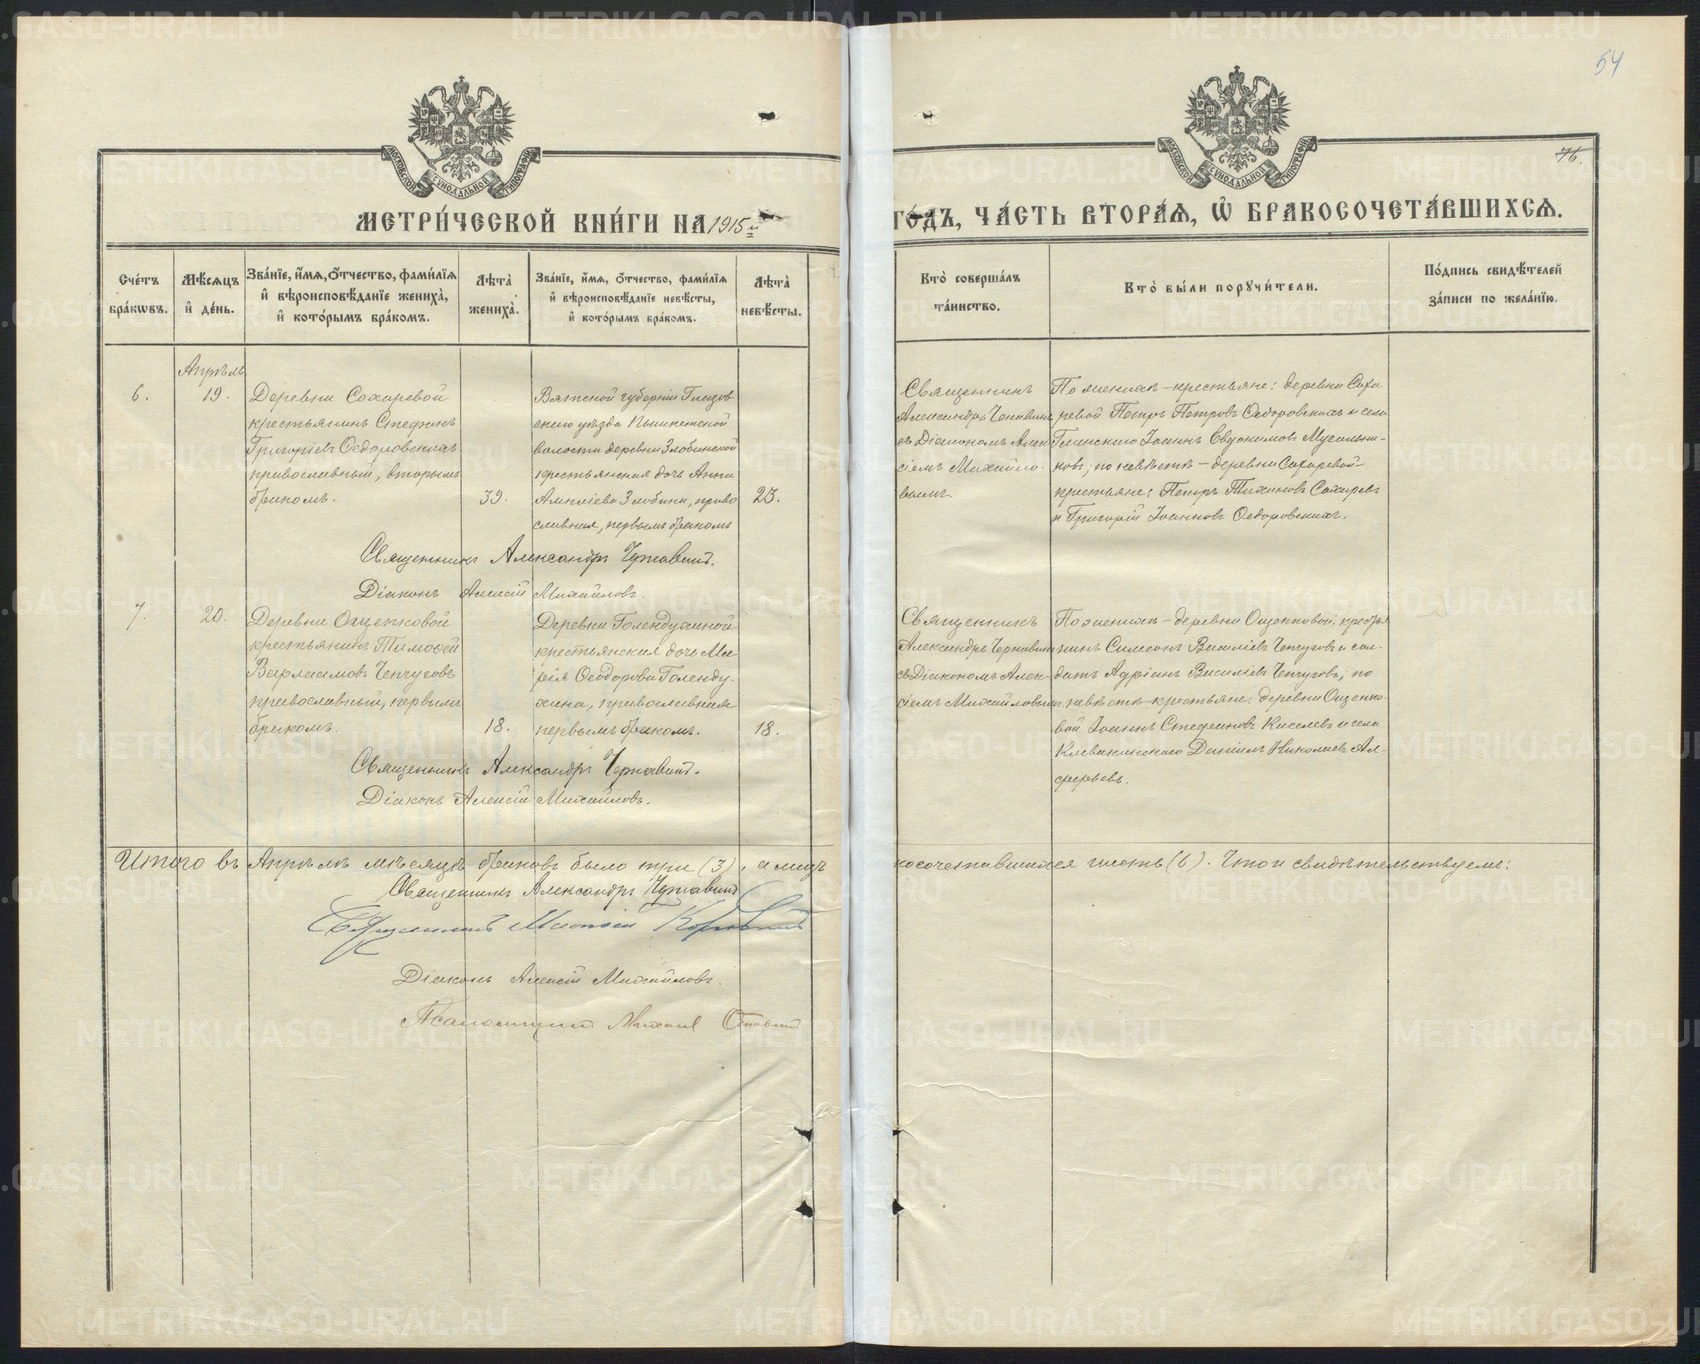 54
76.
МОСКОВСКОЙ СѴНОДАЛЬНОЙ ТИПОГРАФІИ
МОСКОВСКОЙ СѴНОДАЛЬНОЙ ТИПОГРАФІИ
МЕТРИ́ЧЕСКОЙ КНИ́ГИ НА 1915й
ГО́ДЪ, ЧА́СТЬ ВТОРА́Я, Ѡ҆ БРАКОСОЧЕТА́ВШИХСЯ.
Сче́тъ бра́кѡвъ.
Мѣ́сяцъ и҆ де́нь.
Зва́нїе, и҆́мя, ѻ҆́тчество, фами́лїя и҆ вѣроисповѣ́данїе жениха̀, и҆ кото́рымъ бра́комъ.
Лѣта̀ жениха̀.
Зва́нїе, и҆́мя, ѻ҆́тчество, фами́лїя и҆ вѣроисповѣ́данїе невѣ́сты, и҆ кото́рымъ бра́комъ.
Лѣта̀ невѣ́сты.
Кто̀ соверша́лъ та́инство.
Кто̀ бы́ли порꙋчи́тели.
По́дпись свидѣ́телей за́писи по жела́нїю.
Апрѣль
6.
19.
Деревни Сохаревой
крестьянинъ Стефанъ
Григорiевъ Ѳедоровскихъ
православный, вторымъ
бракомъ.
39.
Вятской губернiи Глазов
скаго уѣзда
волости деревни Злобинской
крестьянская дочь Анна
Злобина, право
славная, первымъ бракомъ
23.
Священникъ
Александръ Чернавинъ
съ Дiакономъ Алек
сiемъ Михайло-
вымъ.
По женихѣ – крестьяне: деревни Соха
ревой Петръ Петровъ Ѳедоровскихъ и села
Глинскаго Iоаннъ Евдокимовъ Мусальни-
ковъ; по невѣстѣ – деревни Сохаревой –
крестьяне: Петръ Тихоновъ Сохаревъ
и Григорiй Iоанновъ Ѳедоровскихъ.
Священникъ Александръ Чернавинъ.
Дiаконъ Алексiй Михайловъ.
7.
20.
Деревни Ощепковой
крестьянинъ Тимоѳей
Варлаамовъ Чепчуговъ
православный, первымъ
бракомъ.
18.
Деревни Голендухиной
крестьянская дочь Ма-
рiя Ѳеодорова Голенду-
хина, православная
первымъ бракомъ.
18.
Священникъ
Александръ Чернавинъ
съ Дiакономъ Алек-
сiемъ Михайловымъ
По женихѣ – деревни Ощепковой: крестья
нинъ Симеонъ Василiевъ Чепчуговъ и сол-
датъ Адрiанъ Василiевъ Чепчуговъ; по
невѣстѣ – крестьяне: деревни Ощепко-
вой Iоаннъ Стефановъ Киселевъ и села
Клевакинскаго Данiилъ Николаевъ Ал-
ферьевъ.
Священникъ Александръ Чернавинъ.
Дiаконъ Алексiй Михайловъ.
Итого въ Апрѣлѣ мѣсяцѣ браковъ было три (3), а лицъ
косочетавшихся шесть (6). Что и свидѣтельствуемъ:
Священникъ Александръ Чернавинъ
Священникъ
Дiаконъ Алексiй Михайловъ.
Псаломщикъ Михаил
METRIKI.GASO-URAL.RU